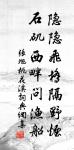 隐隐飞桥隔野烟
石矶西畔问渔船
张旭桃花溪词典网书